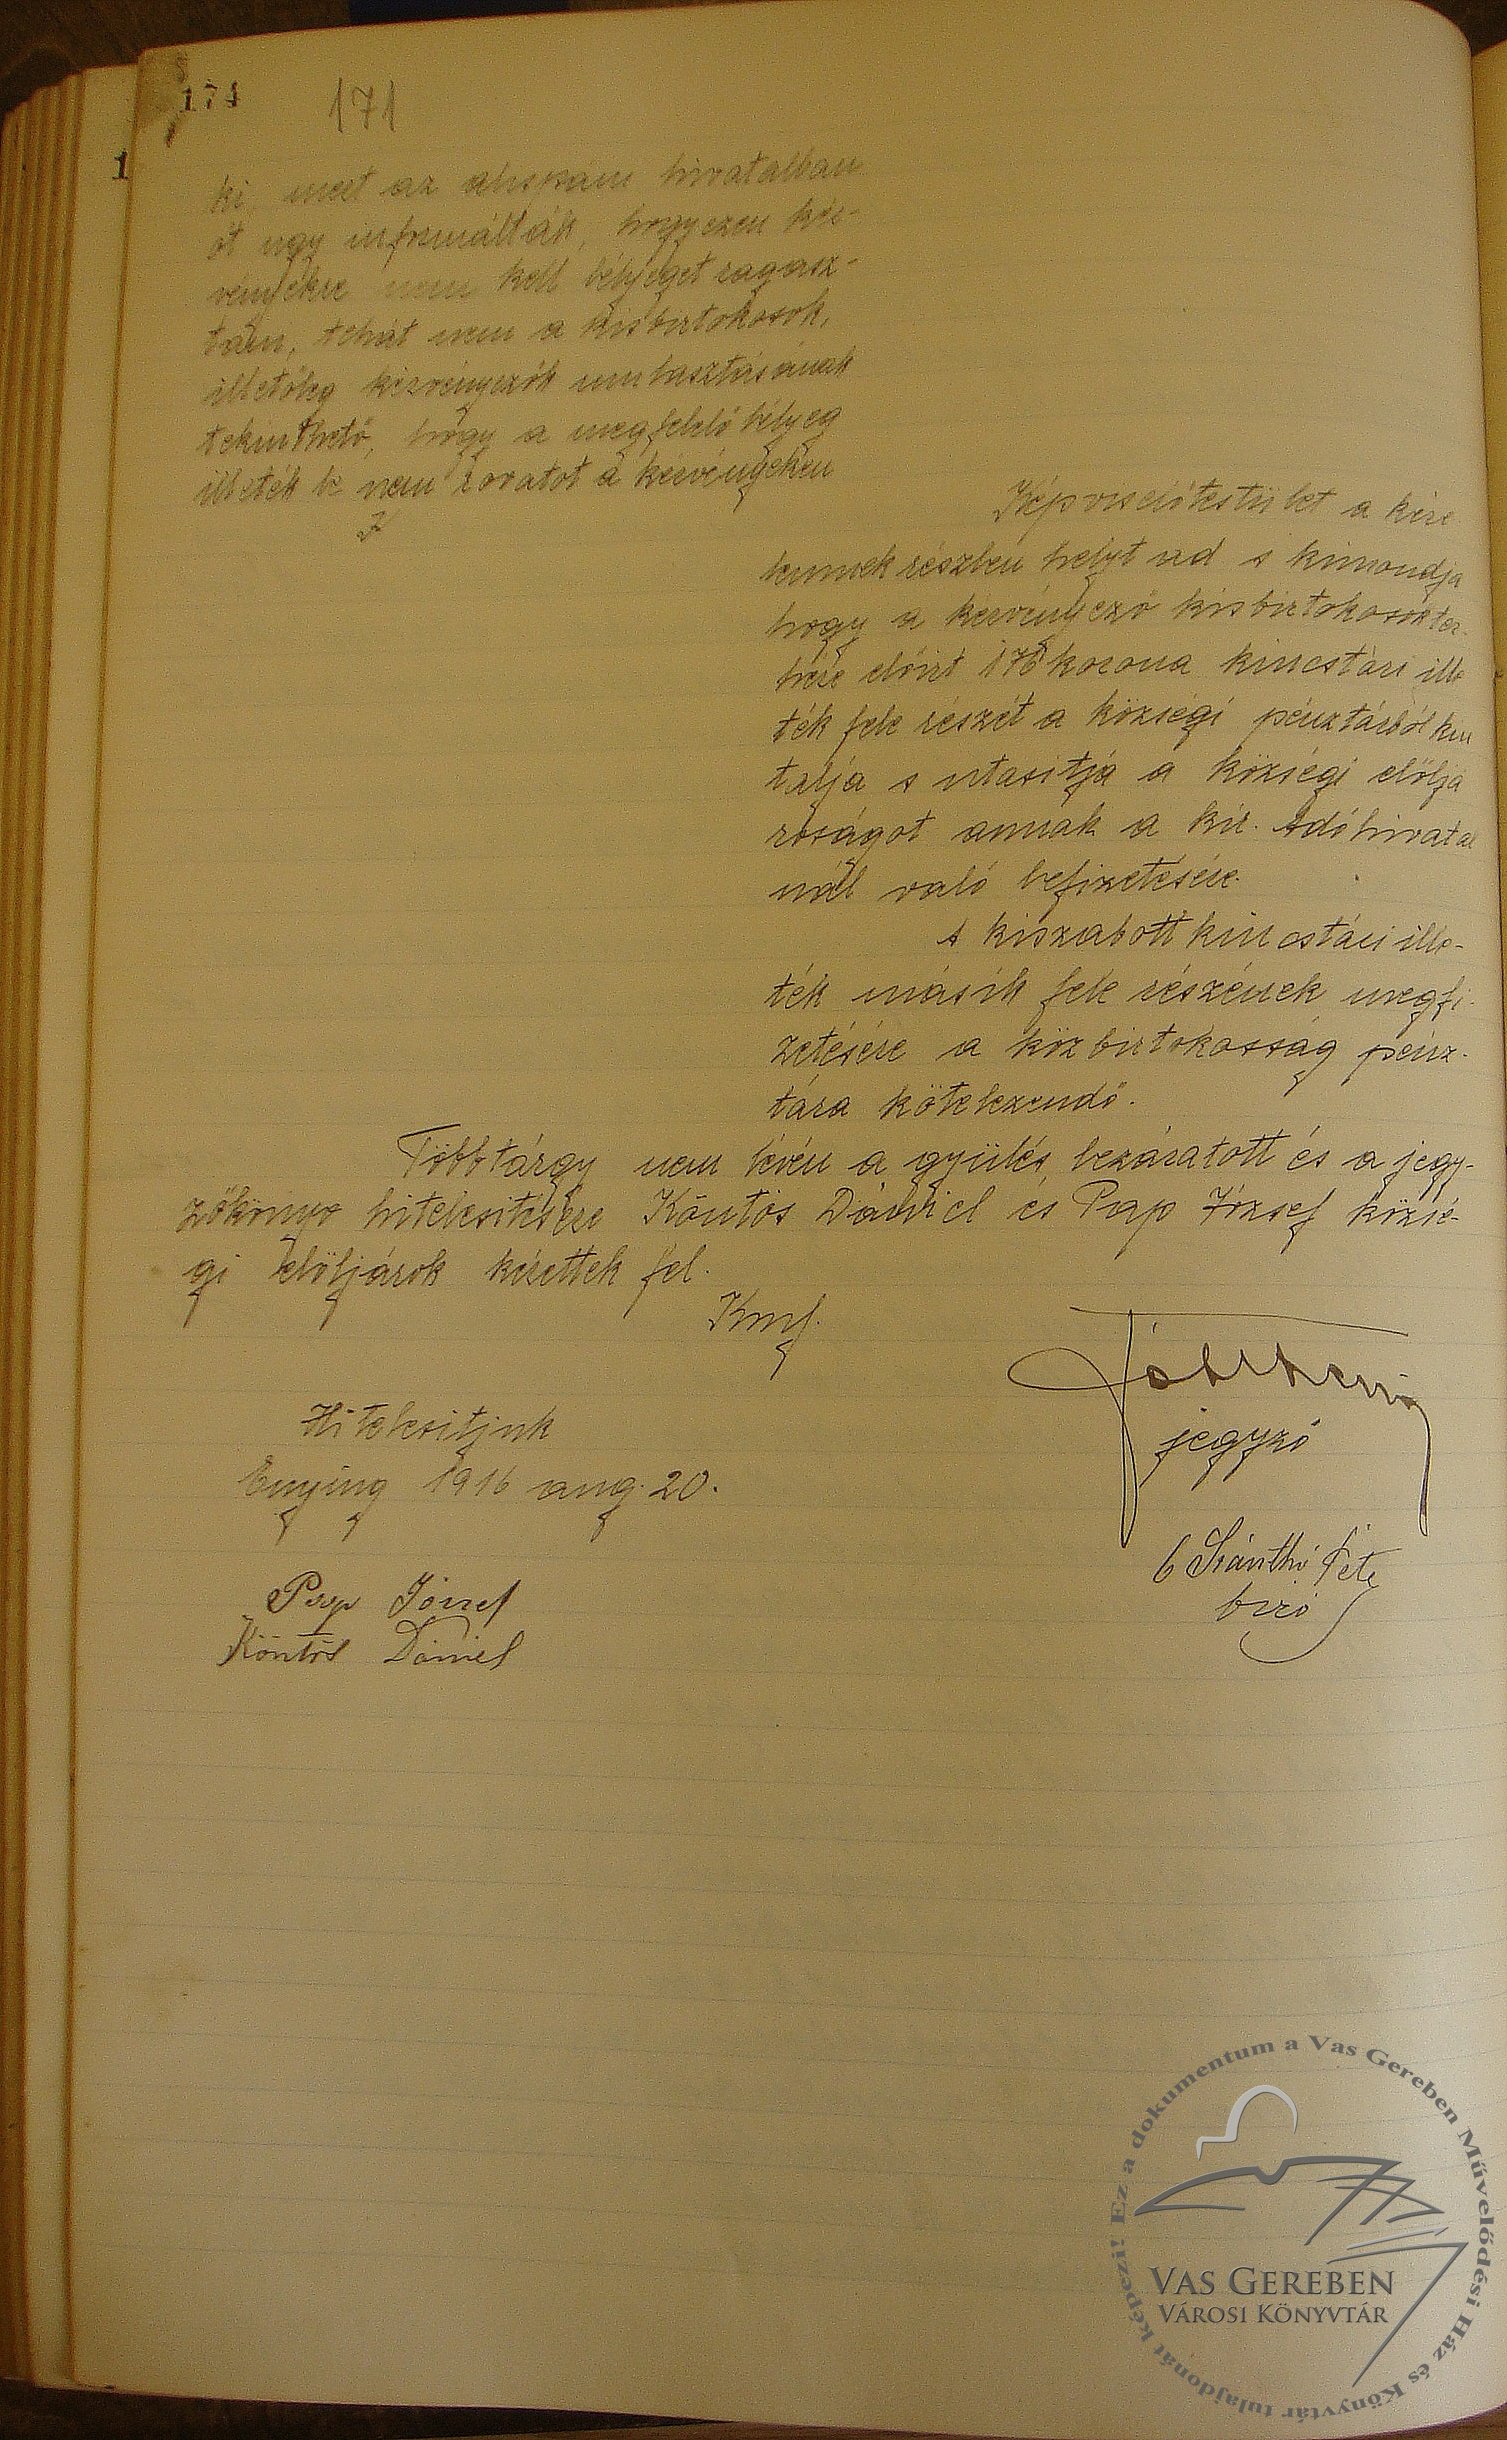 174
171
ki, mert az alispáni hivatalban
őt ugy informálták, hogy ezen kér-
vényekre nem kell bélyeget ragasz-
tani, tehát nem a kisbirtokosok,
illetőleg kérvényezők mulasztásának
tekinthető, hogy a megfelelő bélyeg
illeték le nem rovatot a kérvényeken
Képviselőtestület a kére
lemnek részben helyt ad s kimondja
hogy a kérvényező kisbirtokosok ter-
hére előirt 176 korona kincstári ille
ték fele részét a községi pénztárból kiu
talja s utasitja a községi előljá
róságot annak a kir. Adóhivatal
nál való befizetésére.
A kiszabott kincstári ille-
ték másik fele részének megfi-
zetésére a közbirtokosság pénz-
tára kötelezendő.
Több tárgy nem lévén a gyülés bezáratott és a jegy-
zőkönyv hitelesitésére Köntös Dániel és Pap József közsé-
gi előljárók kérettek fel.
Kmf.
jegyző
Hitelesitjük
Enying 1916 aug. 20.
Szánthó Péte
biró
Pap József
Köntös Dániel
Ez a dokumentum a Vas Gereben Művelődési Ház és Könyvtár tulajdonát képezi!
VAS GEREBEN
VÁROSI KÖNYVTÁR